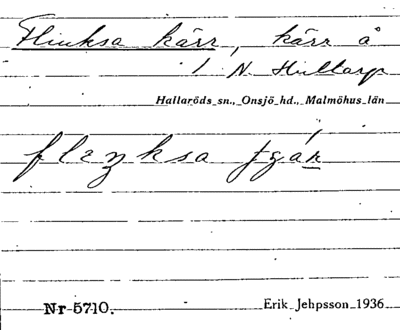 Flinksa kärr, kärr å
1 N. Hultarp
Hallaröds sn., Onsjö hd., Malmöhus län
Nr 5710. Erik Jehpsson 1936